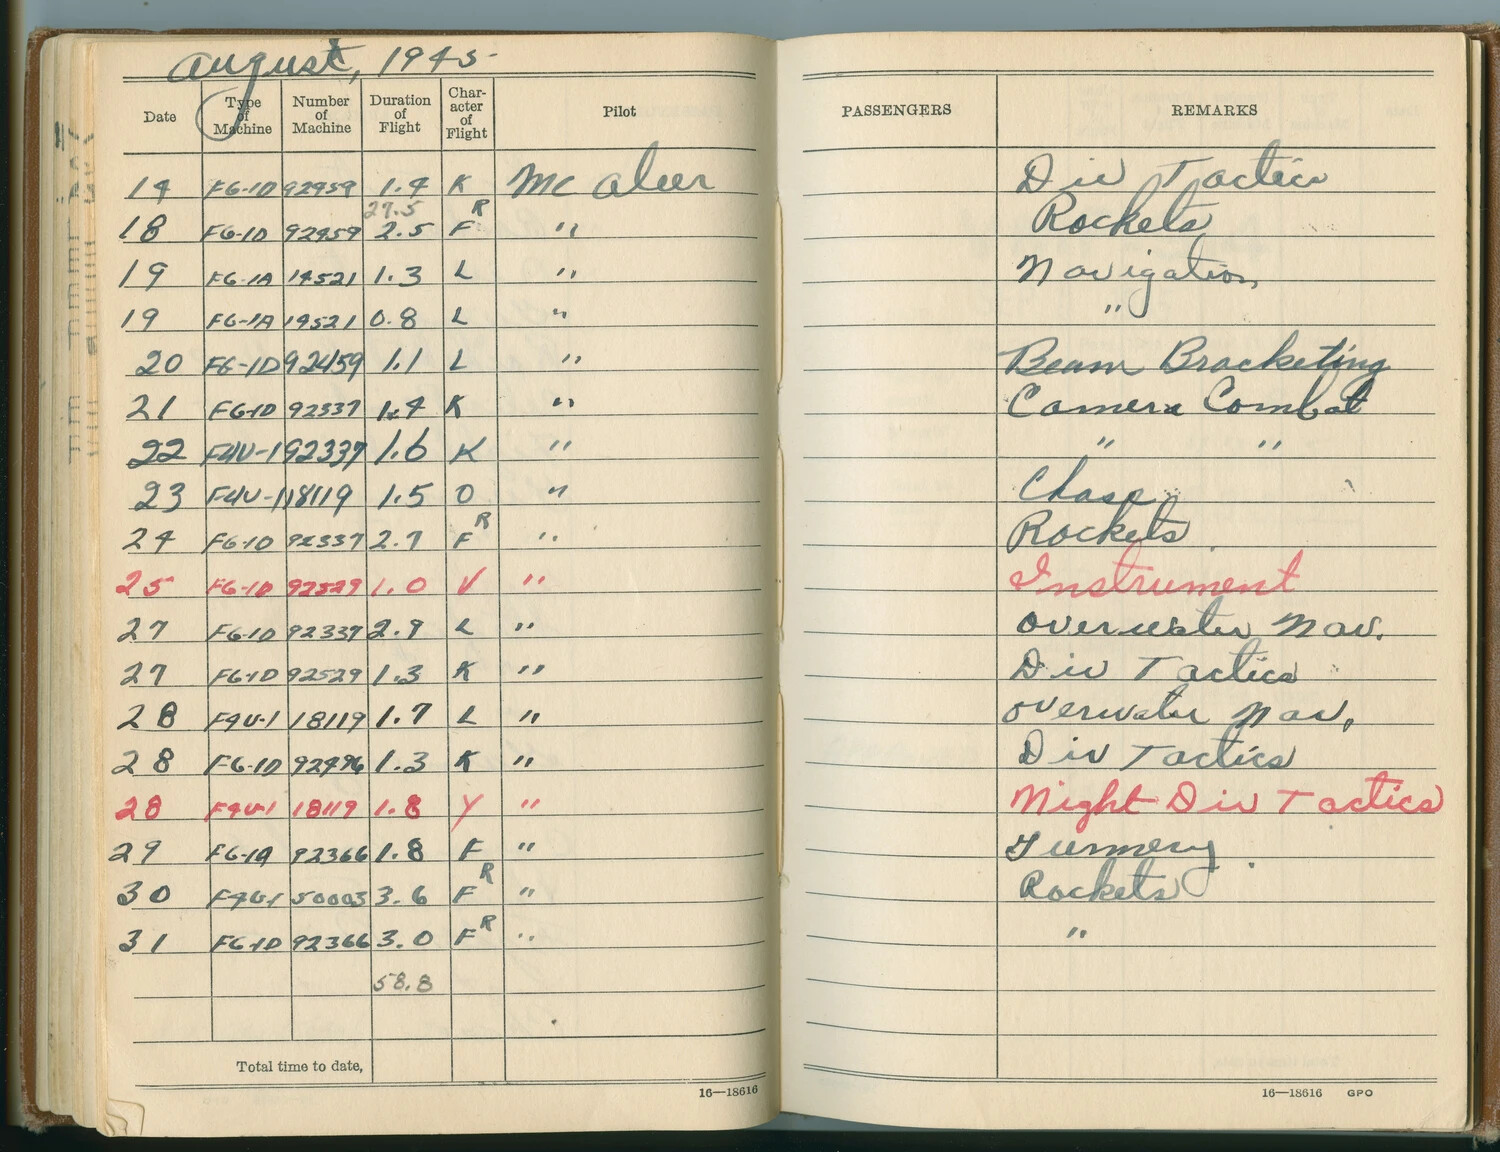 August, 1945
Date Type of Machine Number of Machine Duration of Flight Character of Flight Pilot PASSENGERS REMARKS
14 FG-1D 92459 1.4 K McAleer Div Tactics
27.5
18 FG-1D 92459 2.5 F R " Rockets
19 FG-1A 14521 1.3 L " Navigation
19 FG-1A 14521 0.8 L " "
20 FG-1D 92459 1.1 L " Beam Bracketing
21 FG-1D 92337 1.4 K " Camera Combat
22 F4U-1 92337 1.6 K " " "
23 F4U-1 18119 1.5 O " Chase
24 FG-1D 92337 2.7 F R " Rockets
25 FG-1D 92529 1.0 V " Instrument
27 FG-1D 92337 2.9 L " overwater Nav.
27 FG-1D 92529 1.3 K " Div Tactics
28 F4U-1 18119 1.7 L " overwater Nav.
28 FG-1D 92496 1.3 K " Div Tactics
28 F4U-1 18119 1.8 Y " Night Div Tactics
29 FG-1A 92366 1.8 F " Gunnery
30 F4U-1 50003 3.6 F R " Rockets
31 FG-1D 92366 3.0 F R " "
58.8
Total time to date,
16—18616 16—18616 GPO